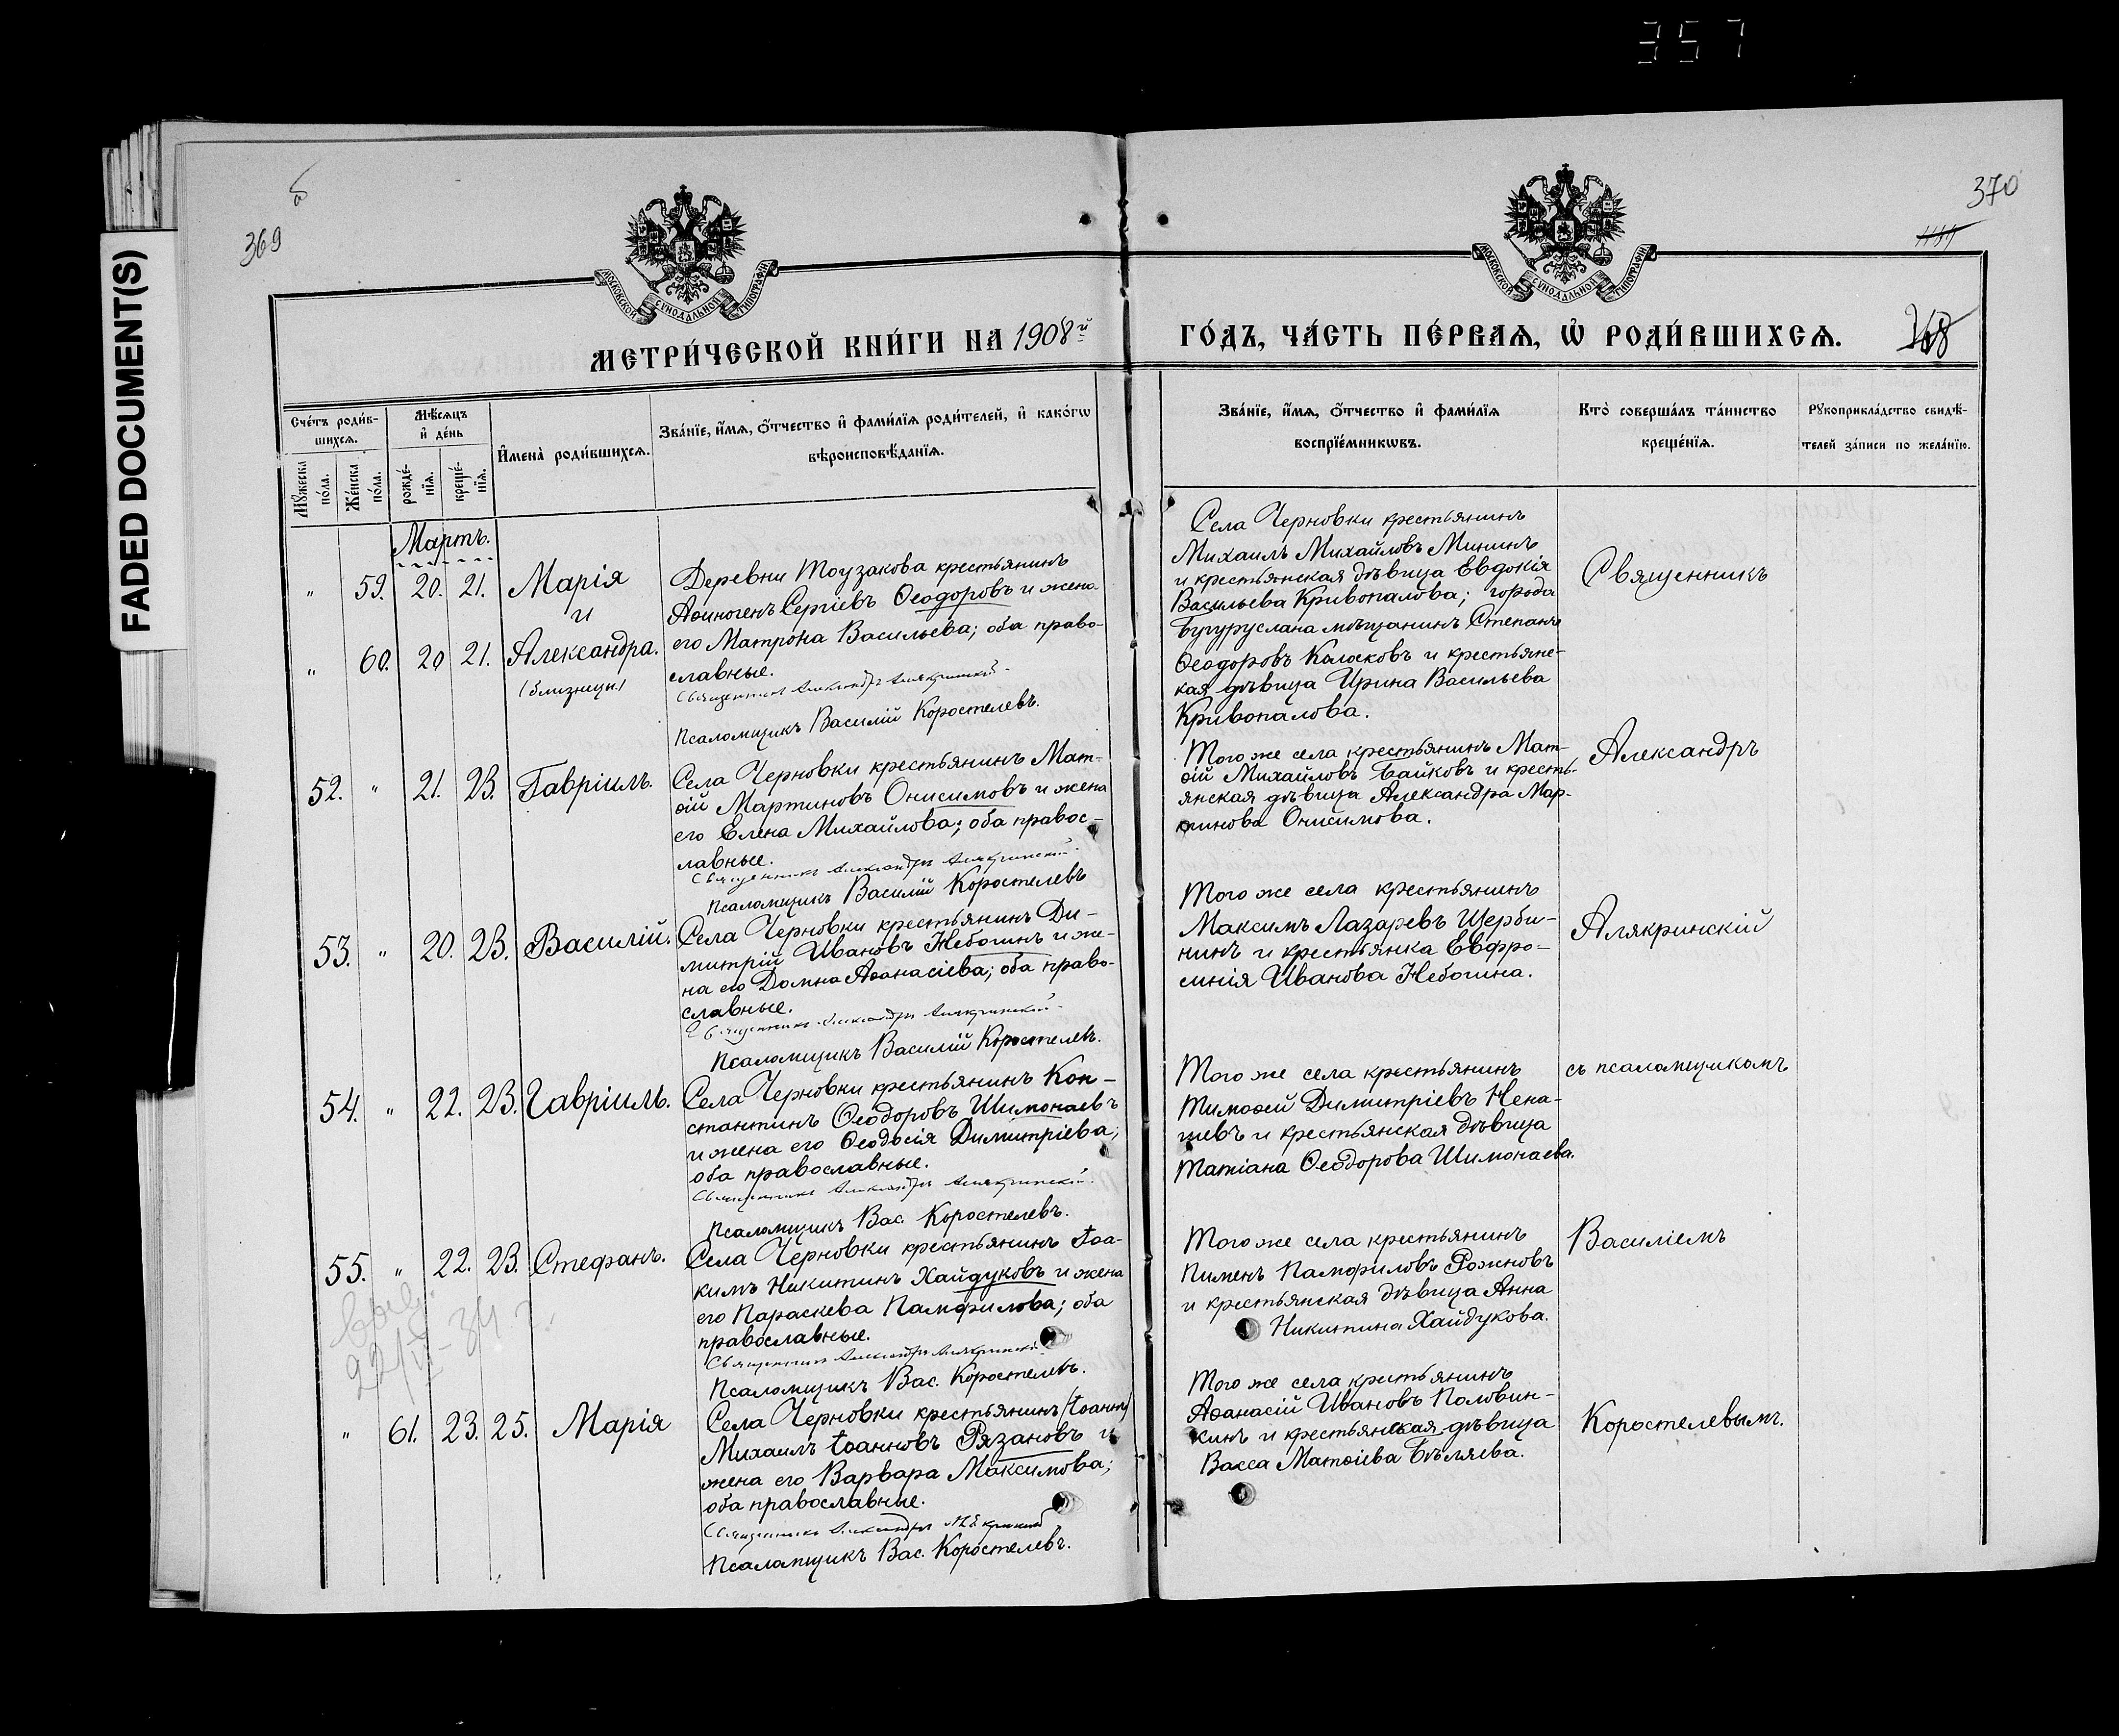 357
FADED DOCUMENT(S)
369
370
МОСКОВСКОЙ СѴНОДАЛЬНОЙ ТИПОГРАФІИ
МОСКОВСКОЙ СѴНОДАЛЬНОЙ ТИПОГРАФІИ
МЕТРИ́ЧЕСКОЙ КНИ́ГИ НА 1908й
ГО́ДЪ, ЧА́СТЬ ПЕ́РВАѦ, Ѡ҆ РОДИ́ВШИХСѦ.
Сче́тъ роди́в-
шихсѧ.
Мꙋ́жеска
по́ла.
Же́нска
по́ла.
Мѣ́сѧцъ
и҆ де́нь
рожде́-
нїѧ.
креще́-
нїѧ.
И҆мена̀ роди́вшихсѧ.
Зва́нїе, и҆́мѧ, ѻ҆́тчество и҆ фами́лїѧ роди́телей, и҆ како́гѡ
вѣроисповѣ́данїѧ.
Зва́нїе, и҆́мѧ, ѻ҆́тчество и҆ фами́лїѧ
воспрїе́мникѡвъ.
Кто̀ соверша́лъ та́инство
креще́нїѧ.
Рꙋкоприкла́дство свидѣ́-
телей за́писи по жела́нїю.
Мартъ.
" 59. 20. 21. Марія
и
" 60. 20 21. Александра.
(близнецы)
Деревни Тоузакова крестьянинъ
Аѳиногенъ Сергіевъ Ѳеодоровъ и жена
его Матрона Васильева; оба право-
славные.
Священникъ Александръ Алякринскій
Псаломщикъ Василій Коростелевъ.
Села Черновки крестьянинъ
Михаилъ Михайловъ Мининъ
и крестьянская дѣвица Евдокія
Васильева Кривопалова; города
Бугуруслана мѣщанинъ Степанъ
Ѳеодоровъ Колосковъ и крестьянс-
кая дѣвица Ирина Васильева
Кривопалова.
Священникъ
52. " 21. 23. Гавріилъ.
Села Черновки крестьянинъ Мат-
ѳій Мартиновъ Онисимовъ и жена
его Елена Михайлова; оба правос-
лавные.
Священникъ Александръ Алякринскій
Псаломщикъ Василій Коростелевъ
Того же села крестьянинъ Мат-
ѳій Михайловъ Байковъ и кресть-
янская дѣвица Александра Мар-
тинова Онисимова.
Александръ
53. " 20. 23. Василій.
Села Черновки крестьянинъ Ди-
митрій Ивановъ Небогинъ и же-
на его Домна Аѳанасіева; оба право-
славные.
Священникъ Александръ Алякринскій
Псаломщикъ Василій Коростелевъ.
Того же села крестьянинъ
Максимъ Лазаревъ Щерби-
нинъ и крестьянка Евфро-
синія Иванова Небогина.
Алякринскій
54. " 22. 23. Гавріилъ.
Села Черновки крестьянинъ Кон-
стантинъ Ѳеодоровъ Шимонаевъ
и жена его Ѳеодосія Димитріева;
оба православные.
Священникъ Александръ Алякринскій
Псаломщикъ Вас. Коростелевъ.
Того же села крестьянинъ
Тимоѳей Димитріевъ Нена-
шевъ и крестьянская дѣвица
Татіана Ѳеодорова Шимонаева.
съ псаломщикомъ
55. " 22. 23. Стефанъ.
Села Черновки крестьянинъ Іоа-
кимъ Никитинъ Хайдуковъ и жена
его Параскева Памфилова; оба
православные.
Священникъ Александръ Алякринскій
Псаломщикъ Вас. Коростелевъ.
Того же села крестьянинъ
Пименъ Памфиловъ Рожновъ
и крестьянская дѣвица Анна
Никитина Хайдукова.
Василіемъ
" 61. 23. 25. Марія
Села Черновки крестьянинъ (Іоаннъ)
Михаилъ Іоанновъ Рязановъ и
жена его Варвара Максимова;
оба православные.
Священникъ Александръ
Псаломщикъ Вас. Коростелевъ.
Того же села крестьянинъ
Аѳанасій Ивановъ Половин-
кинъ и крестьянская дѣвица
Васса Матѳіева Бѣляева.
Коростелевымъ.